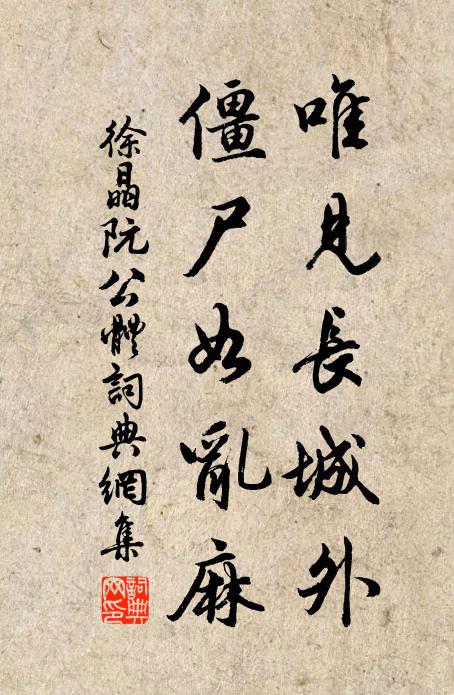 唯見長城外
僵尸如亂麻
徐晶阮公體詞典網集
詞典網印